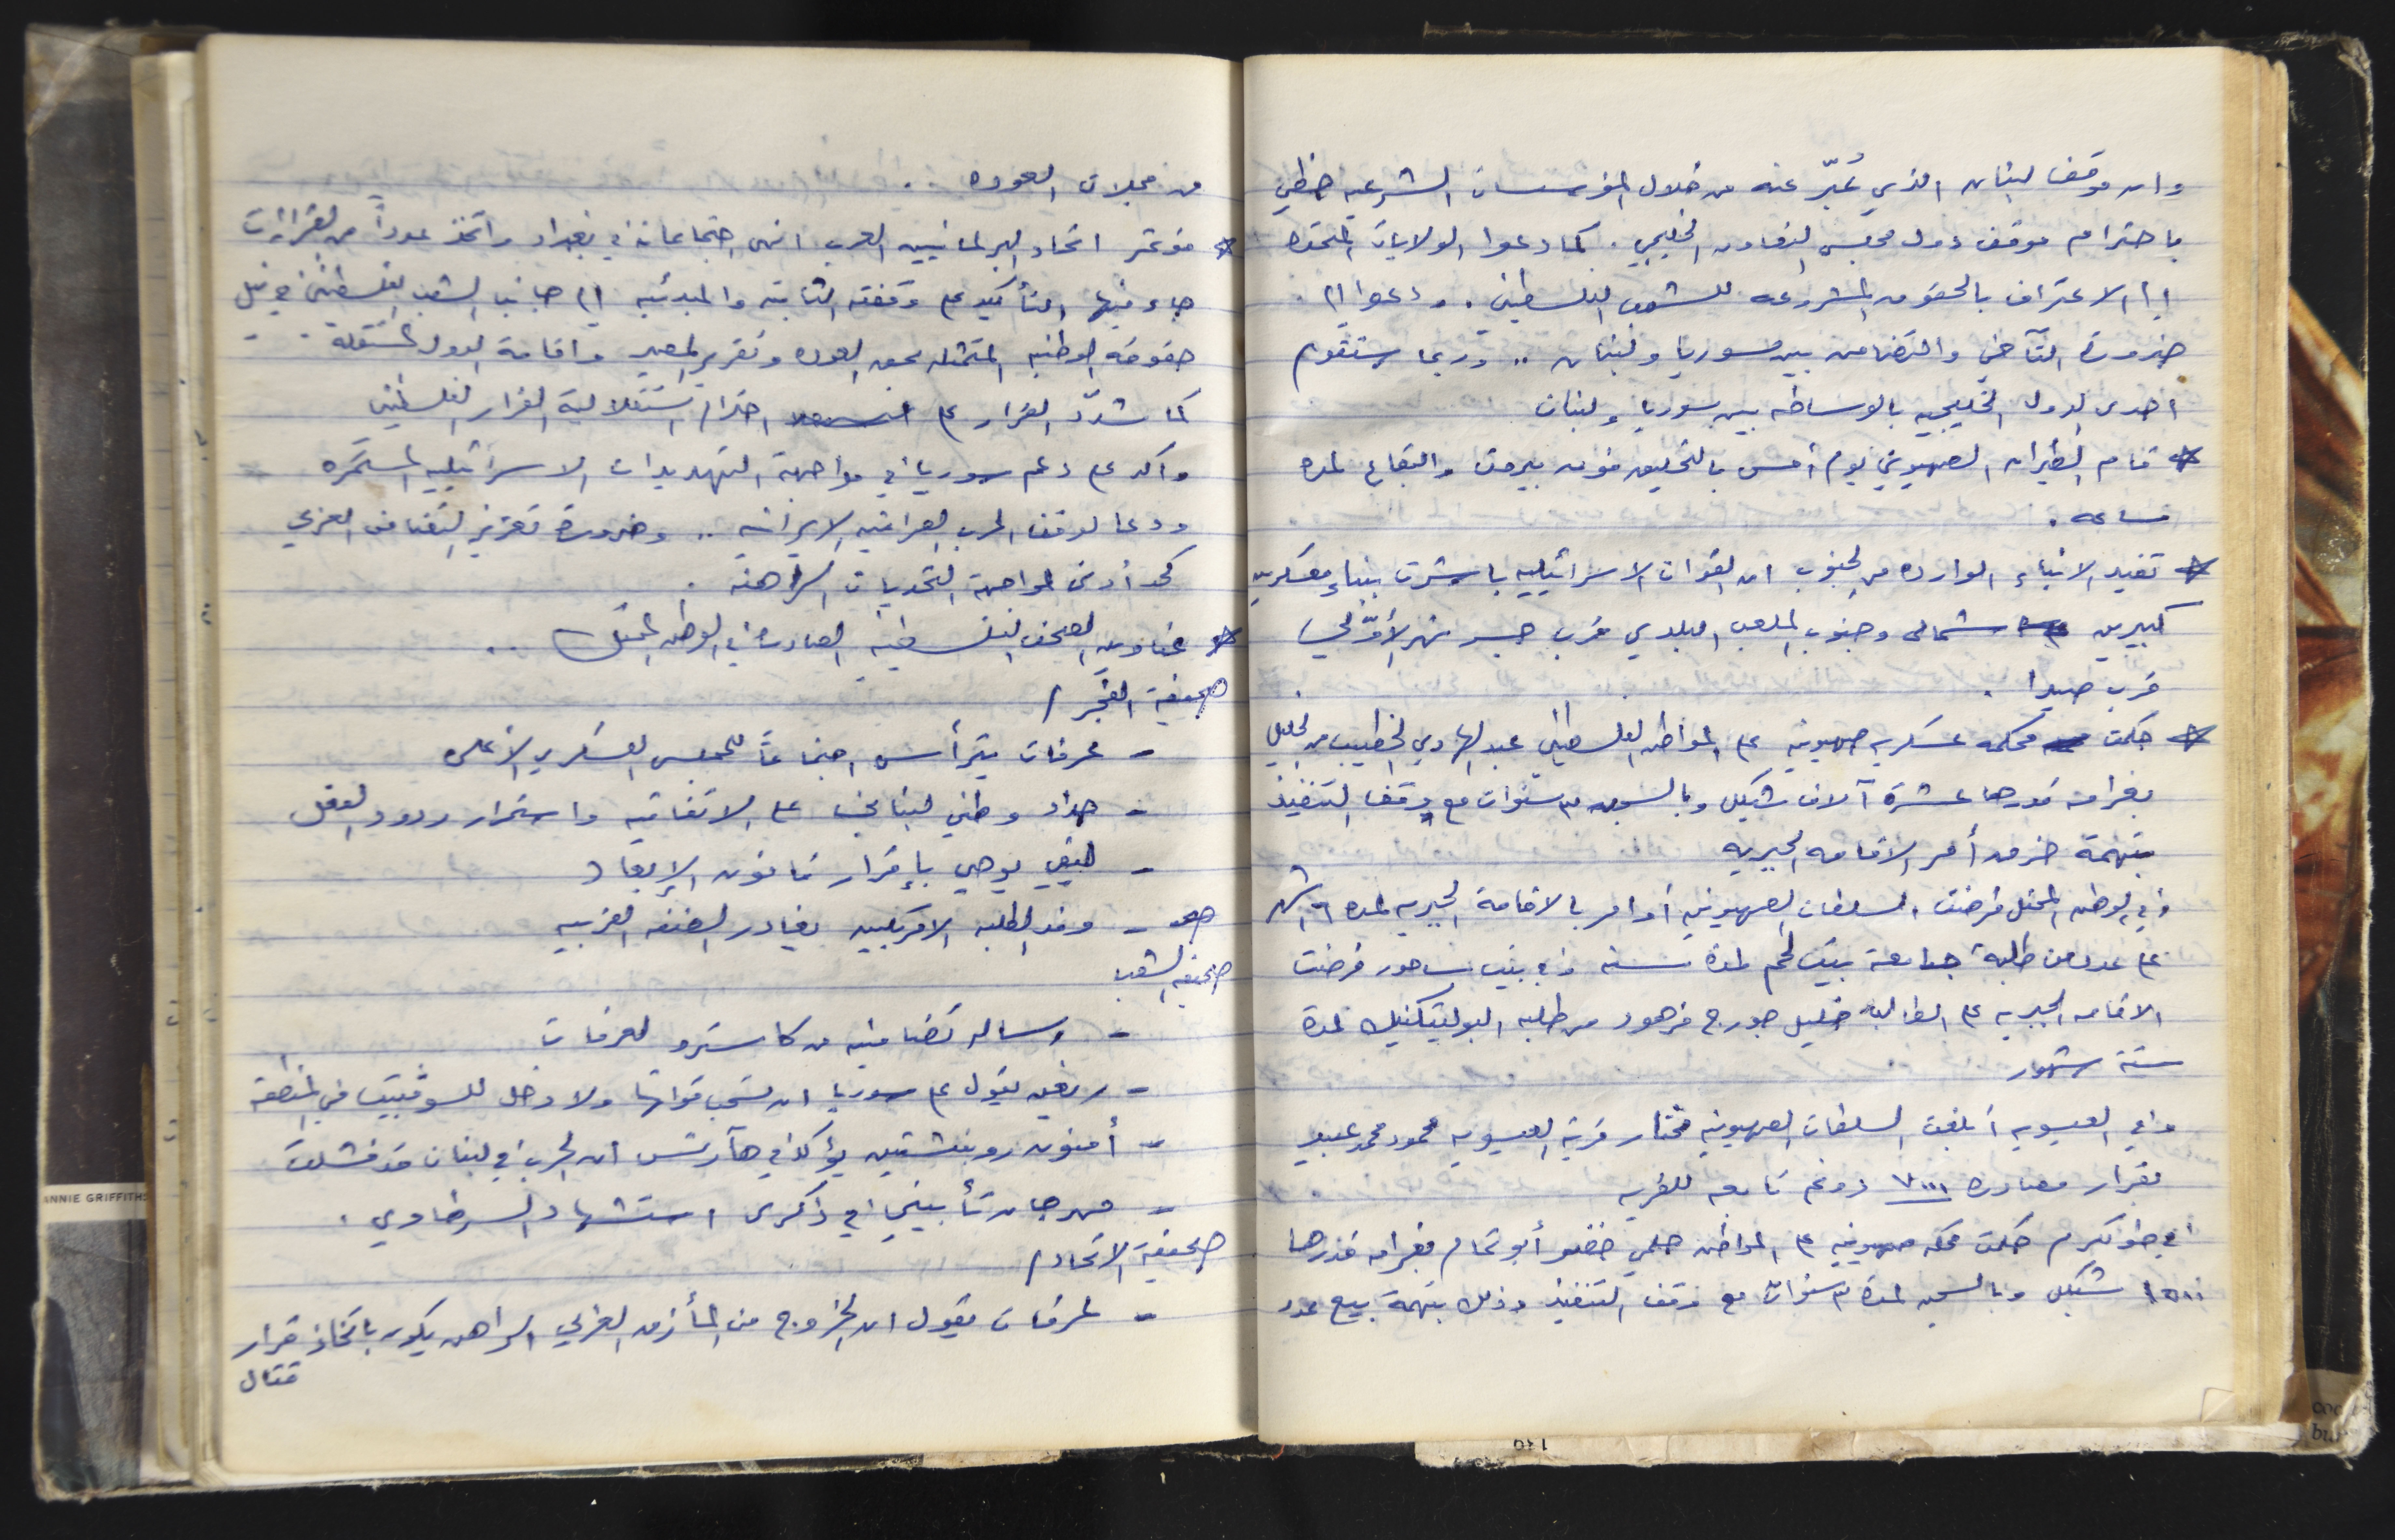 وان موقف لبنان الذي عُبّر عنه من خلال المؤسسات الشرعيه حظي
باحترام موقف دول مجلس التعاون الخليجي . كما دعوا الولايات المتحدة
الى الاعتراف بالحقوق المشروعه للشعب الفلسطيني . ودعوا الى
ضرورة التآخي والتضامن بين سوريا ولبنان .. وربما ستقوم
احدى الدول الخليجيه بالوساطه بين سوريا ولبنان
* قام الطيران الصهيوني يوم أمس بالتحليق فوق بيروت والبقاع لمدة
ساعه .
* تفيد الانباء الوارده من الجنوب ان القوات الاسرائيليه باشرت ببناء معسكرين
كبيرين شمالى وجنوب الملعب البلدي قرب جسر نهر الأوّلي
قرب صيدا .
* حكمت محكمه عسكريه صهيونيه على المواطن الفلسطيني عبد الهادي الخطيب من الخليل
بغرامه قدرها عشرة آلاف شيكل وبالسجن ٣ سنوات مع وقف التنفيذ
بتهمة خرق أمر الاقامه الجبريه
وفي الوطن المحتل فرضت السلطات الصهيونيه أوامر بالاقامة الجبريه لمدة ٦ اشهر
على عدد من طلبة جامعة بيت لحم لمدة سنه وفي بيت ساحور فرضت
الاقامه الجبريه على الطالب خليل جورج فرهود من طلبه البوليتكنيك لمدة
ستة شهور
وفي العيسويه أبلغت السلطات الصهيونيه مختار قرية العيسويه محمود محمد عبيد
بقرار مصادره دونم تابعه للقريه
في طولكرم حكمت محكمه صهيونيه على المواطن حلمي خضر أبو تمام بغرامه قدرها
١٥٠٠ شيكل وبالسجن لمدة ٣ سنوات مع وقف التنفيذ وذلك بتهمة بيع عدد
من مجلات العوده ..
* مؤتمر اتحاد البرلمانيين العرب انهى اجتماعاته في بغداد واتخذ عدداً من القرارات
جاء فيها التأكيد على وقفته الثابته والمبدئيه الى جانب الشعب الفلسطيني في نيل
حقوقه الوطنيه المتمثله بحق العوده وتقرير المصير واقامة الدوله المستقله .
كما شدّد القرار على احترام استقلالية القرار الفلسطيني
واكد على دعم سوريا في مواجهة التهديدات الاسرائيليه المستمره
ودعا لوقف الحرب العراقيه الايرانيه .. وضرورة تعزيز التضامن العربي
كحد أدنى لمواجهة التحديات الراهنه .
* عناوين الصحف الفلسطينيه الصادره في الوطن المحتل ..
صحيفة الفجر /
- عرفات يترأس اجتماعاً للمجلس العسكري الأعلى
- حداد وطني لبناني على الاتفاقيه واستمرار ردود الفعل
- ليفي يوصي بإقرار قانون الإبعاد
- وفد الطلبه الامريكيين يغادر الضفه الغربيه
صحيفة الشعب
- رساله تضامنيه من كاسترو لعرفات
- ريغن يقول على سوريا ان تسحب قواتها ولا دخل للسوفييت في المنطقة
- أمنون روبنشتين يؤكد في هآرتس ان الحرب في لبنان قد فشلت
- مهرجان تأبيني في ذكرى استشهاد السرطاوي .
صحيفة الاتحاد /
- عرفات يقول ان الخروج من المأزق العربي الراهن يكون باتخاذ قرار
قتال
ANNIE GRIFFITHS